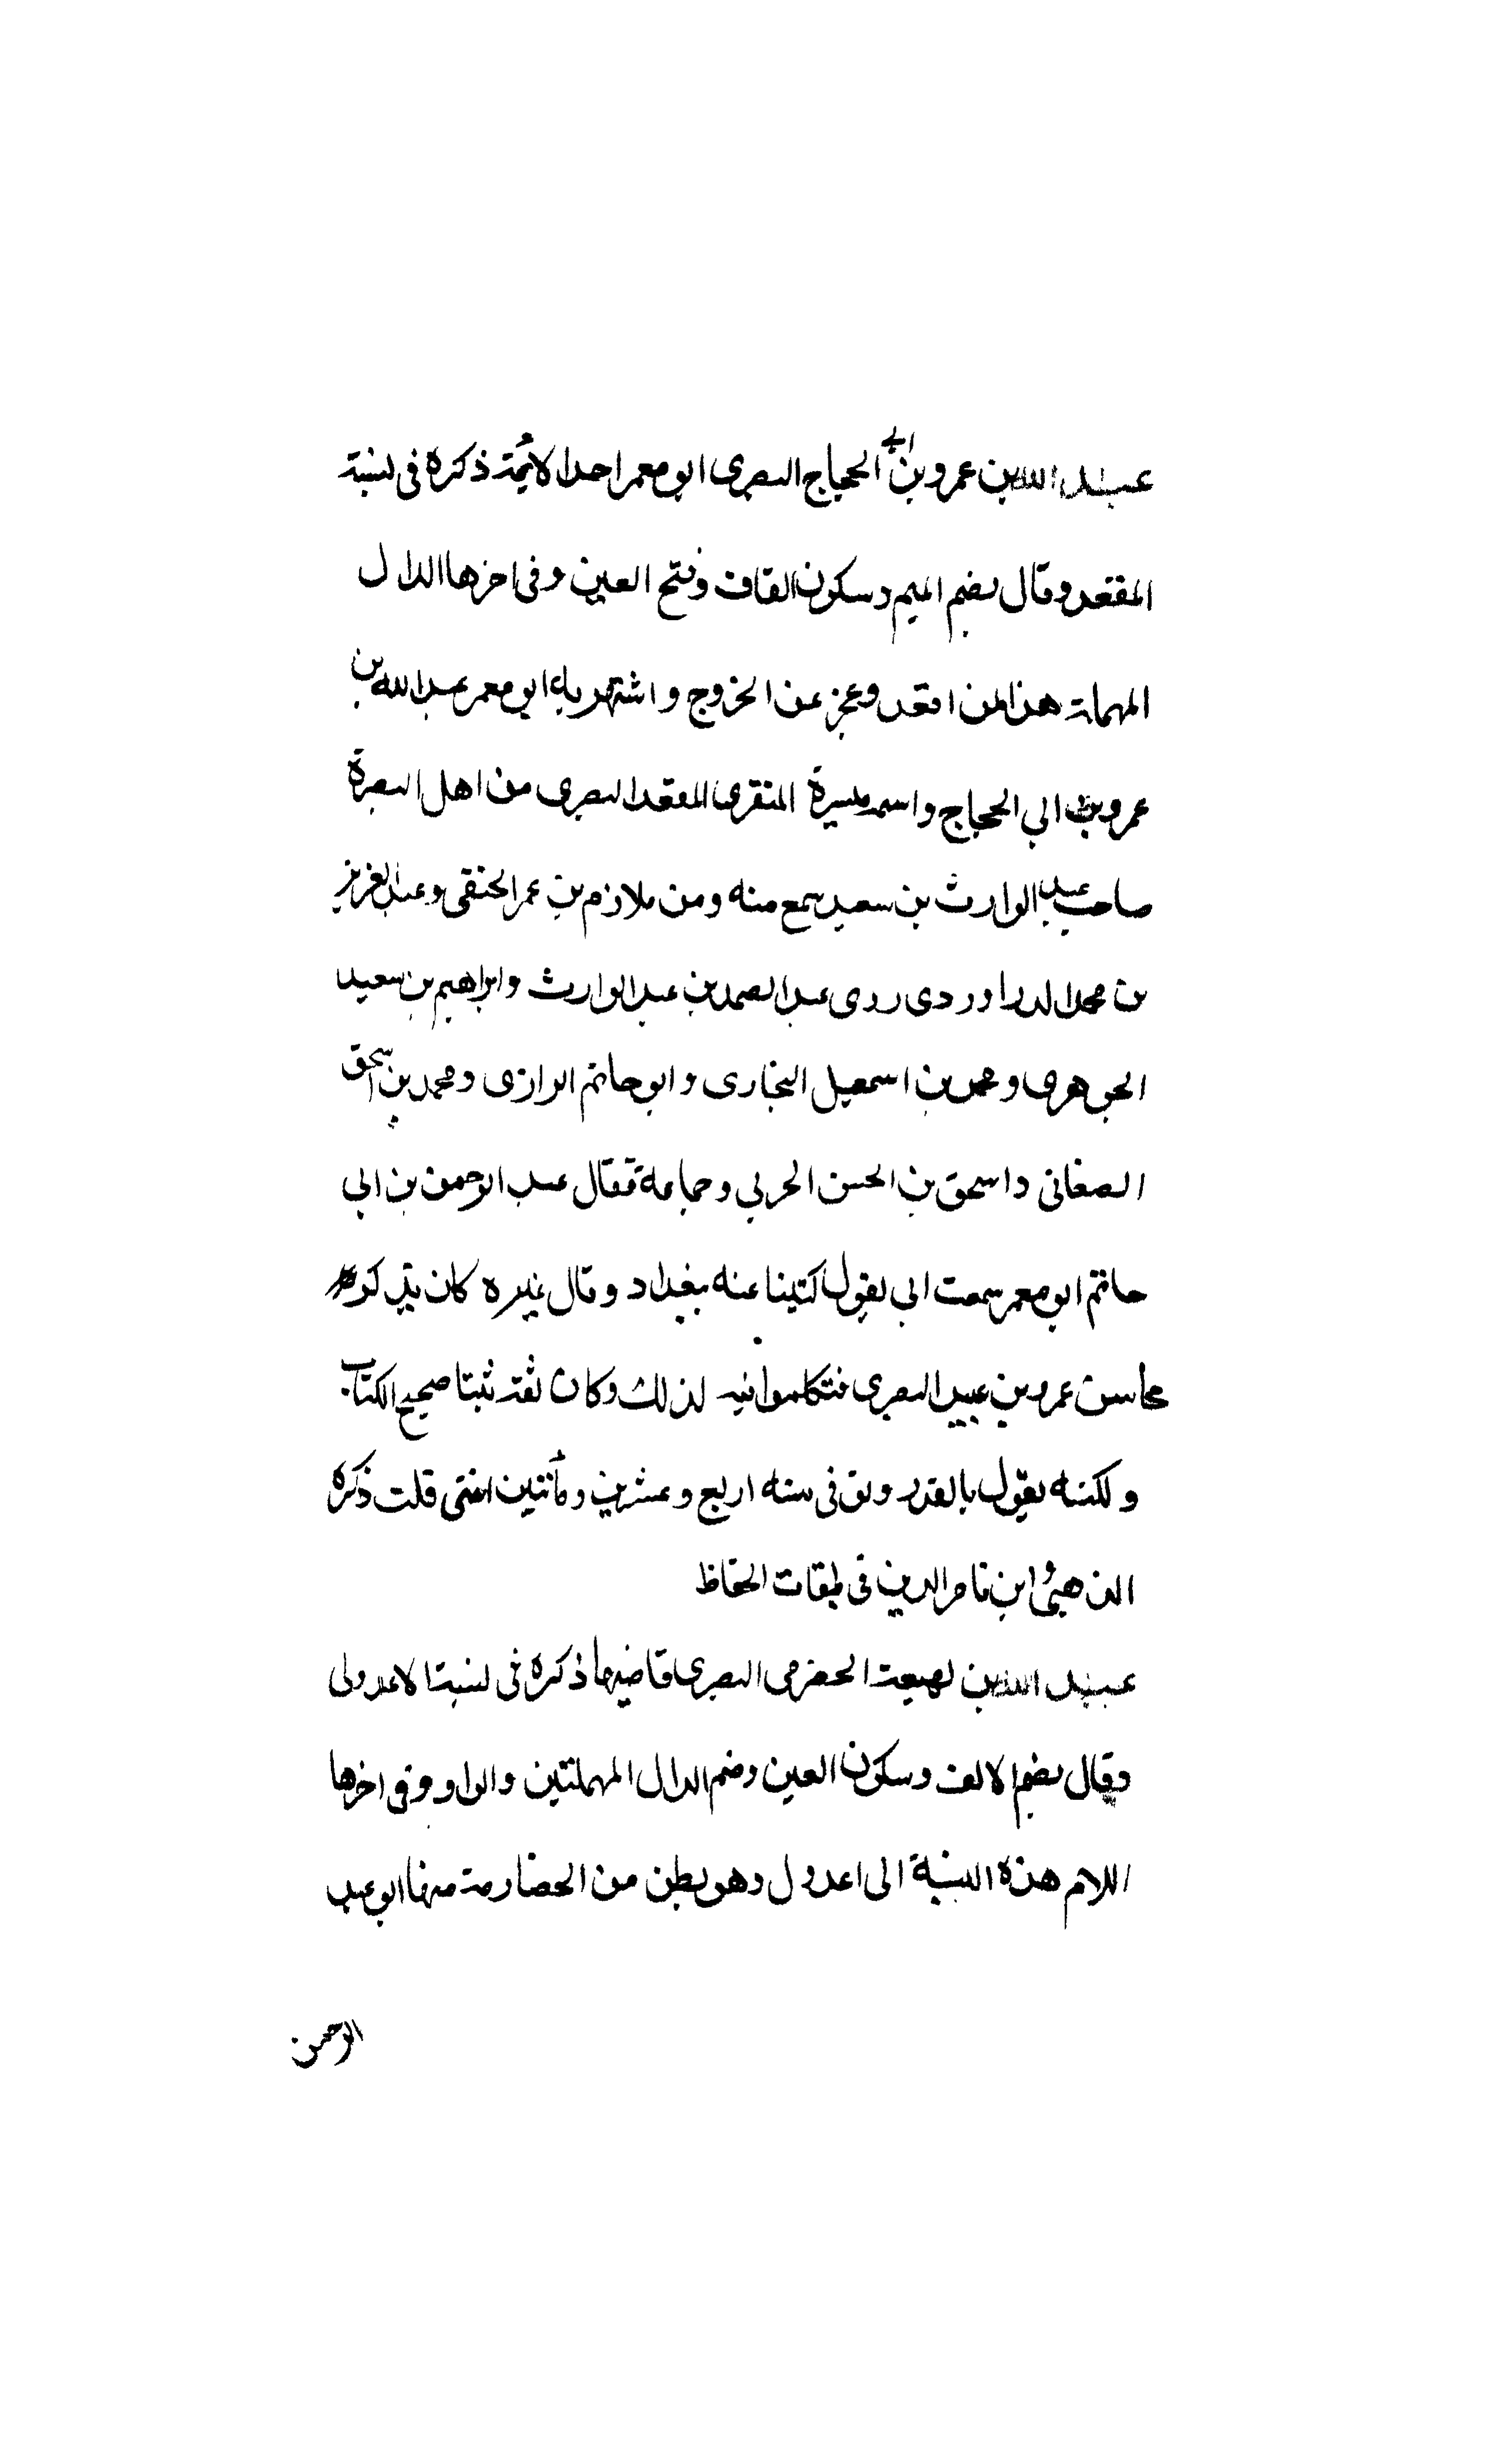 عبد الله بن عمرو بن ابي الحجاج البصرى ابو معمر احد الائمة ذكره فى نسبة
المقعد وقال بضم الميم وسكون القاف وفتح العين وفى اخرها الدال
المهملة هذا لمن اقعد وعجز عن الخروج واشتهر به ابو معمر عبد الله بن
عمرو بن ابي الحجاج واسمه ميسرة المنقرى المقعد البصرى من اهل البصرة
صاحب عبد الوارث بن سعيد سمع منه ومن ملازم بن عمر الحنفى وعبد العزيز
بن محمد الدراوردى روى عبد الصمد بن عبد الوارث وابراهيم بن سعيد
الجوهرى ومحمد بن اسمعيل البخارى وابو حاتم الرازى ومحمد بن اسحق
الصغانى واسحق بن الحسن الحربي وجماعة فقال عبد الرحمن بن ابي
حاتم ابو معمر سمعت ابي يقول كتبنا عنه ببغداد وقال غيره كان يذكر
محاسن عمرو بن عبيد البصرى فتكلموا فيه لذلك وكان ثقة ثبتا صحيح الكتاب
ولكنه يقول بالقدر وتوفى سنه اربع وعشرين ومأتين انتهى قلت ذكره
الذهبى وابن ناصر الدين فى طبقات الحفاظ
عبد الله بن لهيعة الحضرمى البصرى قاضيها ذكره فى نسبة الاعدولى
وقال بضم الالف وسكون العين وضم الدال المهملتين والواو وفى اخرها
اللام هذه النسبة الى اعدول وهو بطن من الحضارمة منها ابو عبد
الرحمن